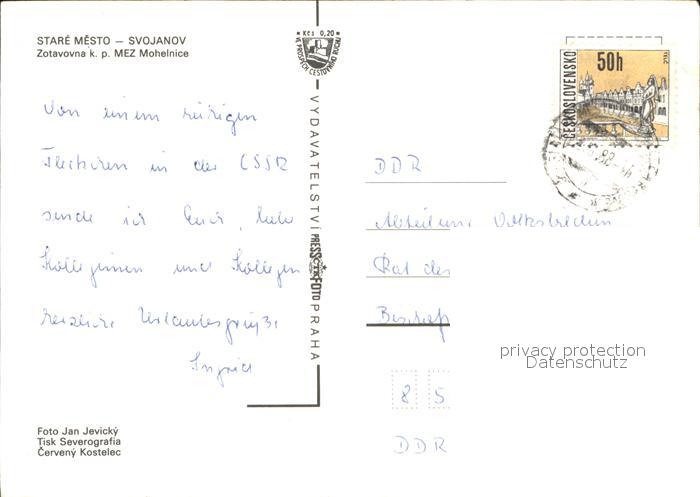 STARÉ MĚSTO – SVOJANOV
Zotavovna k. p. MEZ Mohelnice
Kčs 0,20
VE PROSPĚCH CESTOVNÍHO RUCHU
Von einem ruhigen
Fleckchen in der CSSR
sende ich Euch, liebe
Kolleginnen und Kollegen
herzliche Urlaubsgrüße
Ingrid
VYDAVATELSTVÍ PRESSFOTO PRAHA
ČTK
ČESKOSLOVENSKO
50h
DDR
Abteilung Volksbildung
Rat des
8 5
DDR
privacy protection
Datenschutz
Foto Jan Jevický
Tisk Severografia
Červený Kostelec